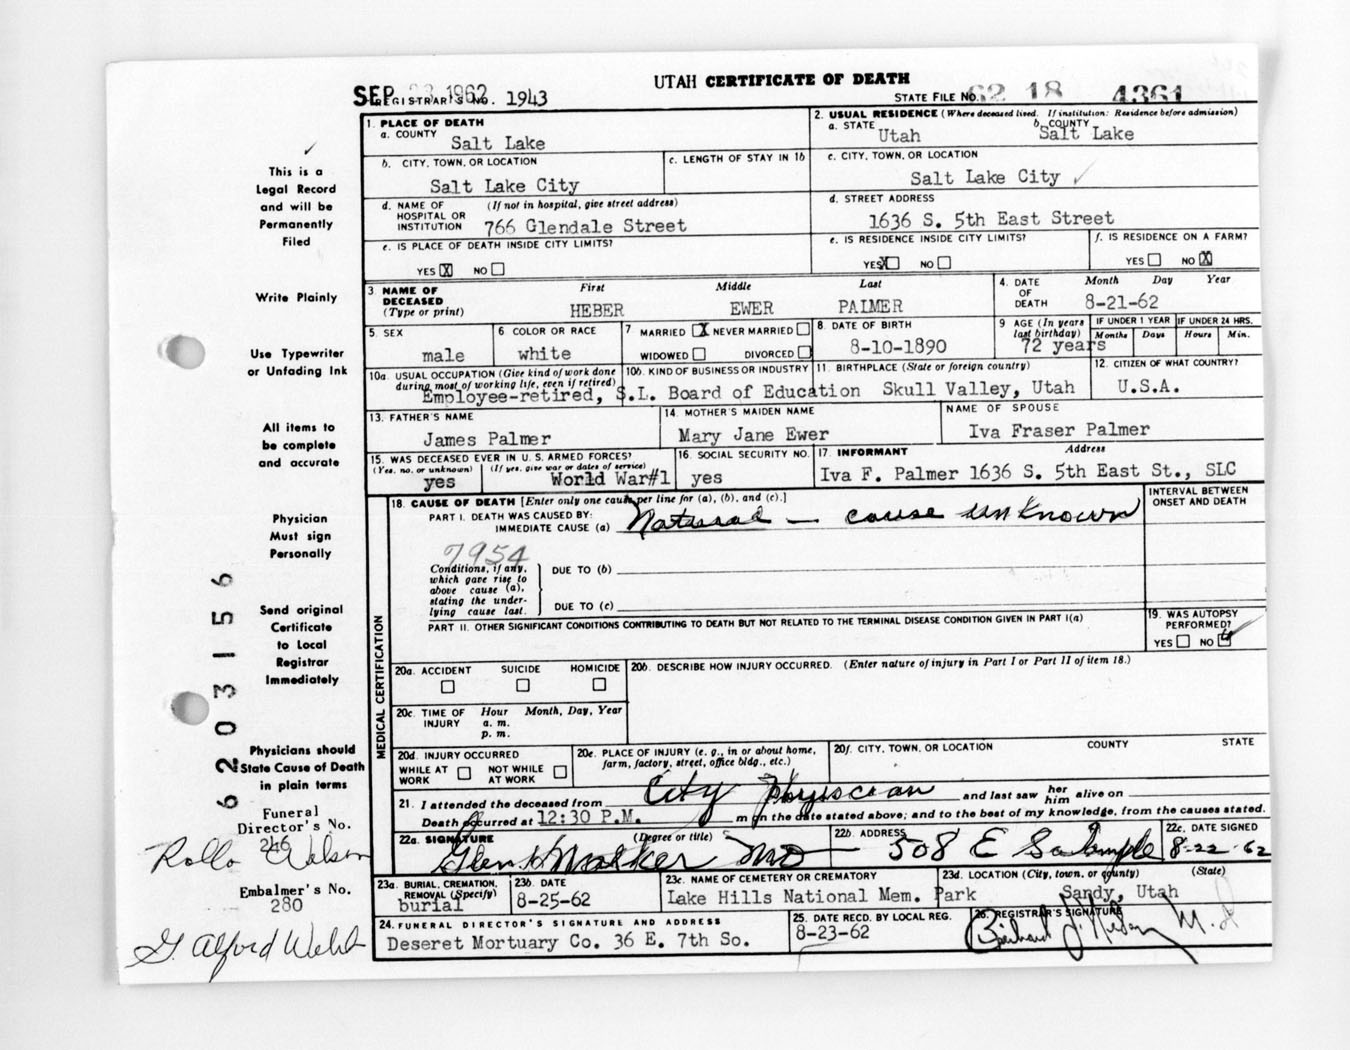 UTAH CERTIFICATE OF DEATH
SEP 1962
REGISTRAR'S NO. 1943
STATE FILE NO. 62 18 4361
This is a
Legal Record
and will be
Permanently
Filed
Write Plainly
Use Typewriter
or Unfading Ink
All items to
be complete
and accurate
Physician
Must sign
Personally
Send original
Certificate
to Local
Registrar
Immediately
Physicians should
State Cause of Death
in plain terms
Funeral
Director's No.
246
Rollo
Embalmer's No.
280
G. Alford Webb
6203156
1. PLACE OF DEATH
a. COUNTY
Salt Lake
2. USUAL RESIDENCE (Where deceased lived. If institution: Residence before admission)
a. STATE Utah b. COUNTY Salt Lake
b. CITY, TOWN, OR LOCATION
Salt Lake City
c. LENGTH OF STAY IN 1b
c. CITY, TOWN, OR LOCATION
Salt Lake City
d. NAME OF HOSPITAL OR INSTITUTION (If not in hospital, give street address)
766 Glendale Street
d. STREET ADDRESS
1636 S. 5th East Street
e. IS PLACE OF DEATH INSIDE CITY LIMITS?
YES X NO
e. IS RESIDENCE INSIDE CITY LIMITS?
YES X NO
f. IS RESIDENCE ON A FARM?
YES NO X
3. NAME OF DECEASED (Type or print)
First Middle Last
HEBER EWER PALMER
4. DATE OF DEATH Month Day Year
8-21-62
5. SEX
male
6 COLOR OR RACE
white
7 MARRIED X NEVER MARRIED
WIDOWED DIVORCED
8. DATE OF BIRTH
8-10-1890
9 AGE (In years last birthday)
72 years
IF UNDER 1 YEAR
Months Days
IF UNDER 24 HRS.
Hours Min.
10a. USUAL OCCUPATION (Give kind of work done during most of working life, even if retired)
10b. KIND OF BUSINESS OR INDUSTRY
Employee-retired, S.L. Board of Education
11. BIRTHPLACE (State or foreign country)
Skull Valley, Utah
12. CITIZEN OF WHAT COUNTRY?
U.S.A.
13. FATHER'S NAME
James Palmer
14. MOTHER'S MAIDEN NAME
Mary Jane Ewer
NAME OF SPOUSE
Iva Fraser Palmer
15. WAS DECEASED EVER IN U. S. ARMED FORCES?
(Yes, no, or unknown) (If yes, give war or dates of service)
yes World War#1
16. SOCIAL SECURITY NO.
yes
17. INFORMANT Address
Iva F. Palmer 1636 S. 5th East St., SLC
MEDICAL CERTIFICATION
18. CAUSE OF DEATH [Enter only one cause per line for (a), (b), and (c).]
PART I. DEATH WAS CAUSED BY:
IMMEDIATE CAUSE (a) Natural — cause unknown
INTERVAL BETWEEN ONSET AND DEATH
7954
Conditions, if any, which gave rise to above cause (a), stating the underlying cause last.
DUE TO (b)
DUE TO (c)
PART II. OTHER SIGNIFICANT CONDITIONS CONTRIBUTING TO DEATH BUT NOT RELATED TO THE TERMINAL DISEASE CONDITION GIVEN IN PART I(a)
19. WAS AUTOPSY PERFORMED?
YES NO
20a. ACCIDENT SUICIDE HOMICIDE
20b. DESCRIBE HOW INJURY OCCURRED. (Enter nature of injury in Part I or Part II of item 18.)
20c. TIME OF INJURY Hour Month, Day, Year
a. m.
p. m.
20d. INJURY OCCURRED
WHILE AT WORK NOT WHILE AT WORK
20e. PLACE OF INJURY (e. g., in or about home, farm, factory, street, office bldg., etc.)
20f. CITY, TOWN, OR LOCATION COUNTY STATE
21. I attended the deceased from City Physician and last saw her him alive on
Death occurred at 12:30 P.M. m on the date stated above; and to the best of my knowledge, from the causes stated.
22a. SIGNATURE (Degree or title)
Glen H Walker MD
22b. ADDRESS
508 E So Temple
22c. DATE SIGNED
8-22-62
23a. BURIAL, CREMATION, REMOVAL (Specify)
burial
23b. DATE
8-25-62
23c. NAME OF CEMETERY OR CREMATORY
Lake Hills National Mem. Park
23d. LOCATION (City, town, or county) (State)
Sandy, Utah
24. FUNERAL DIRECTOR'S SIGNATURE AND ADDRESS
Deseret Mortuary Co. 36 E. 7th So.
25. DATE RECD. BY LOCAL REG.
8-23-62
26. REGISTRAR'S SIGNATURE
M.D